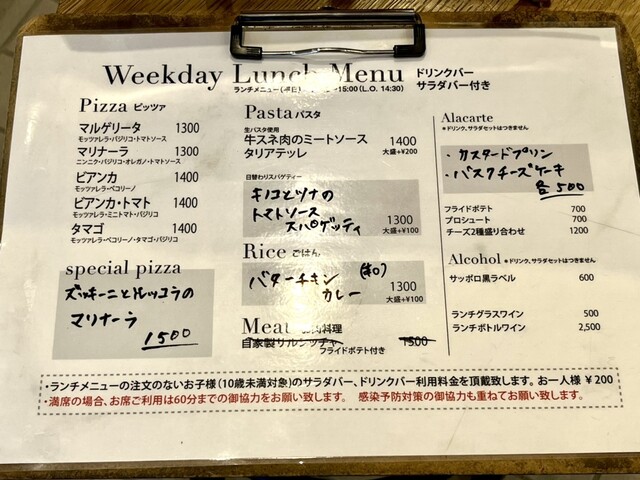 Weekday Lunch Menu
ドリンクバー
サラダバー付き
ランチメニュー(平日) 15:00(L.O. 14:30)
Pizza ピッツァ
マルゲリータ 1300
モッツァレラ・バジリコ・トマトソース
マリナーラ 1300
ニンニク・バジリコ・オレガノ・トマトソース
ビアンカ 1400
モッツァレラ・ペコリーノ
ビアンカ・トマト 1400
モッツァレラ・ミニトマト・バジリコ
タマゴ 1400
モッツァレラ・ペコリーノ・タマゴ・バジリコ
special pizza
ズッキーニとルッコラの
マリナーラ
1500
Pasta パスタ
生パスタ使用
牛スネ肉のミートソース
タリアテッレ
1400
大盛+¥200
日替わりスパゲティー
キノコとツナの
トマトソース
スパゲッティ
1300
大盛+¥100
Rice ごはん
バターチキン (和)
カレー
1300
大盛+¥100
Meat お肉料理
自家製サルシッチャ 1500
フライドポテト付き
Alacarte
*ドリンク、サラダセットはつきません
・カスタードプリン
・バスクチーズケーキ
各500
フライドポテト 700
プロシュート 700
チーズ2種盛り合わせ 1200
Alcohol *ドリンク、サラダセットはつきません
サッポロ黒ラベル 600
ランチグラスワイン 500
ランチボトルワイン 2,500
・ランチメニューの注文のないお子様(10歳未満対象)のサラダバー、ドリンクバー利用料金を頂戴致します。お一人様 ¥200
・満席の場合、お席ご利用は60分までの御協力をお願い致します。 感染予防対策の御協力も重ねてお願い致します。